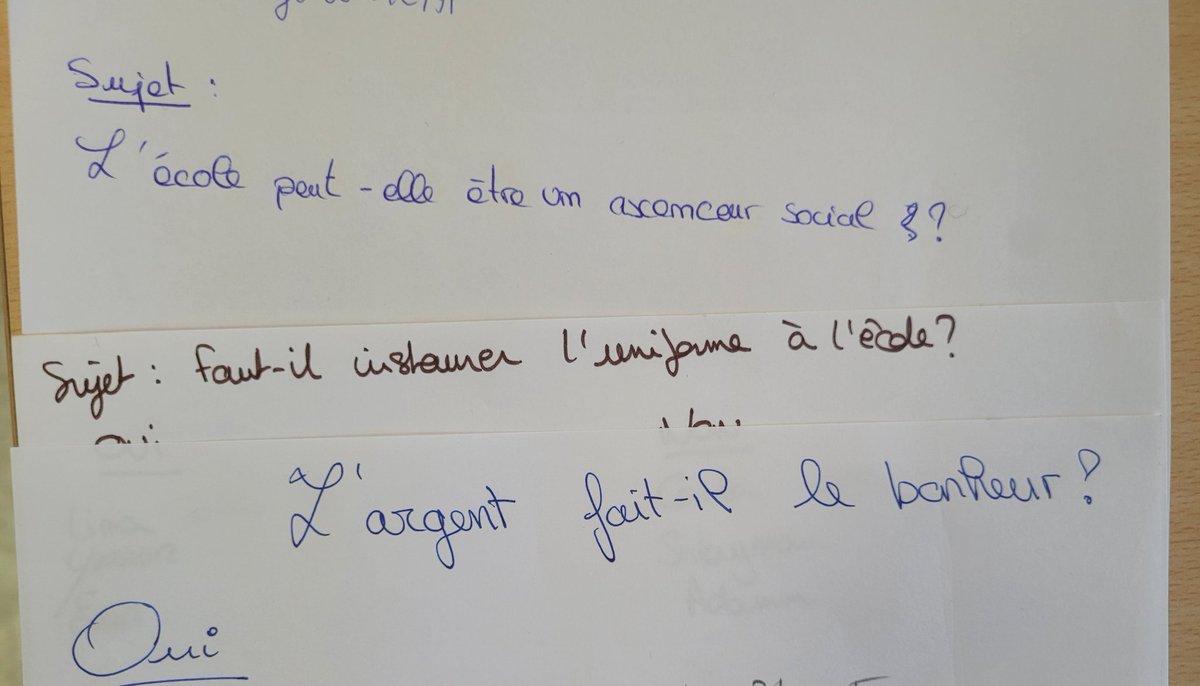 Sujet :
L'école peut-elle être un ascenceur social ?
Sujet : Faut-il instaurer l'uniforme à l'école ?
Oui Non
L'argent fait-il le bonheur ?
Oui